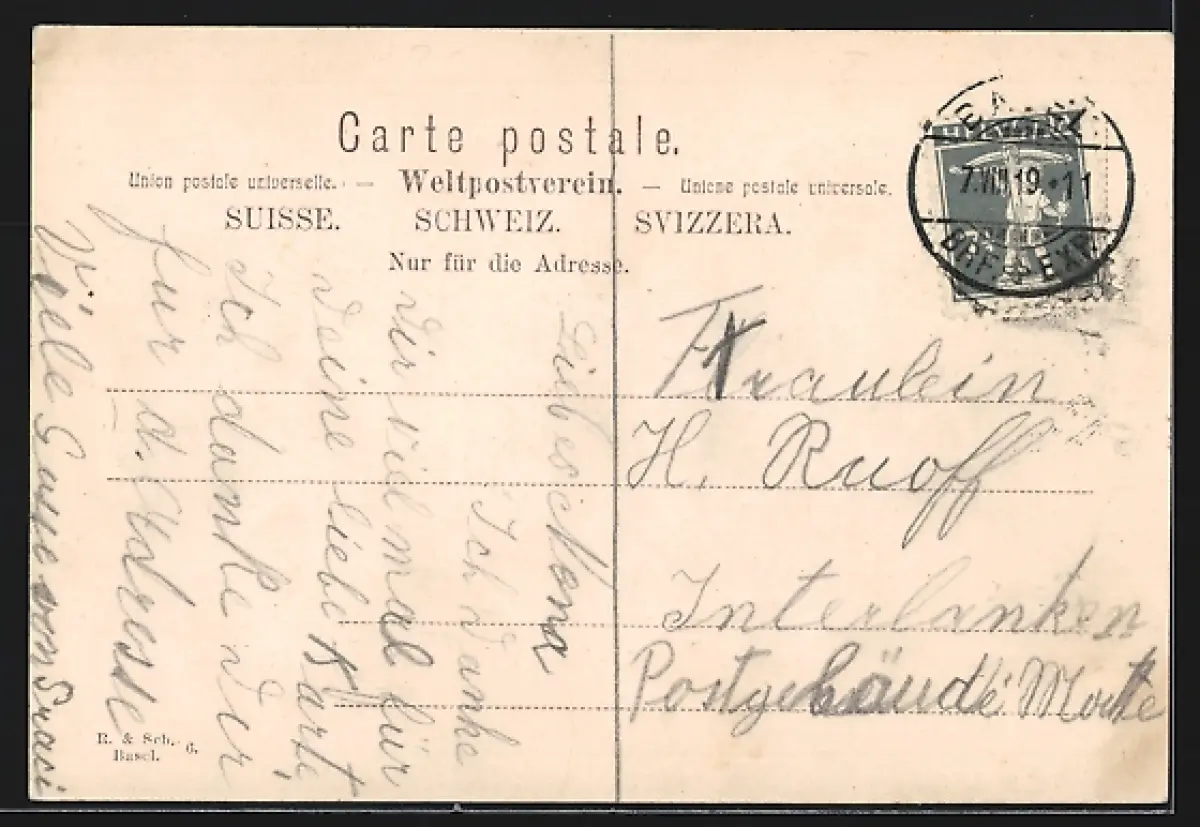 Carte postale.
Union postale universelle. — Weltpostverein. — Unione postale universale.
SUISSE. SCHWEIZ. SVIZZERA.
Nur für die Adresse.
7.VIII.19.-11
BRF. EXP.
Fräulein
H. Ruoff
Interlanken
Postgebäude Matte
Liebes
Ich Danke
Dir vielmal für
Deine liebe Karte
Ich danke Dir
fur d. Adresse
Viele Grüsse von
R. & Sch. 6.
Basel.